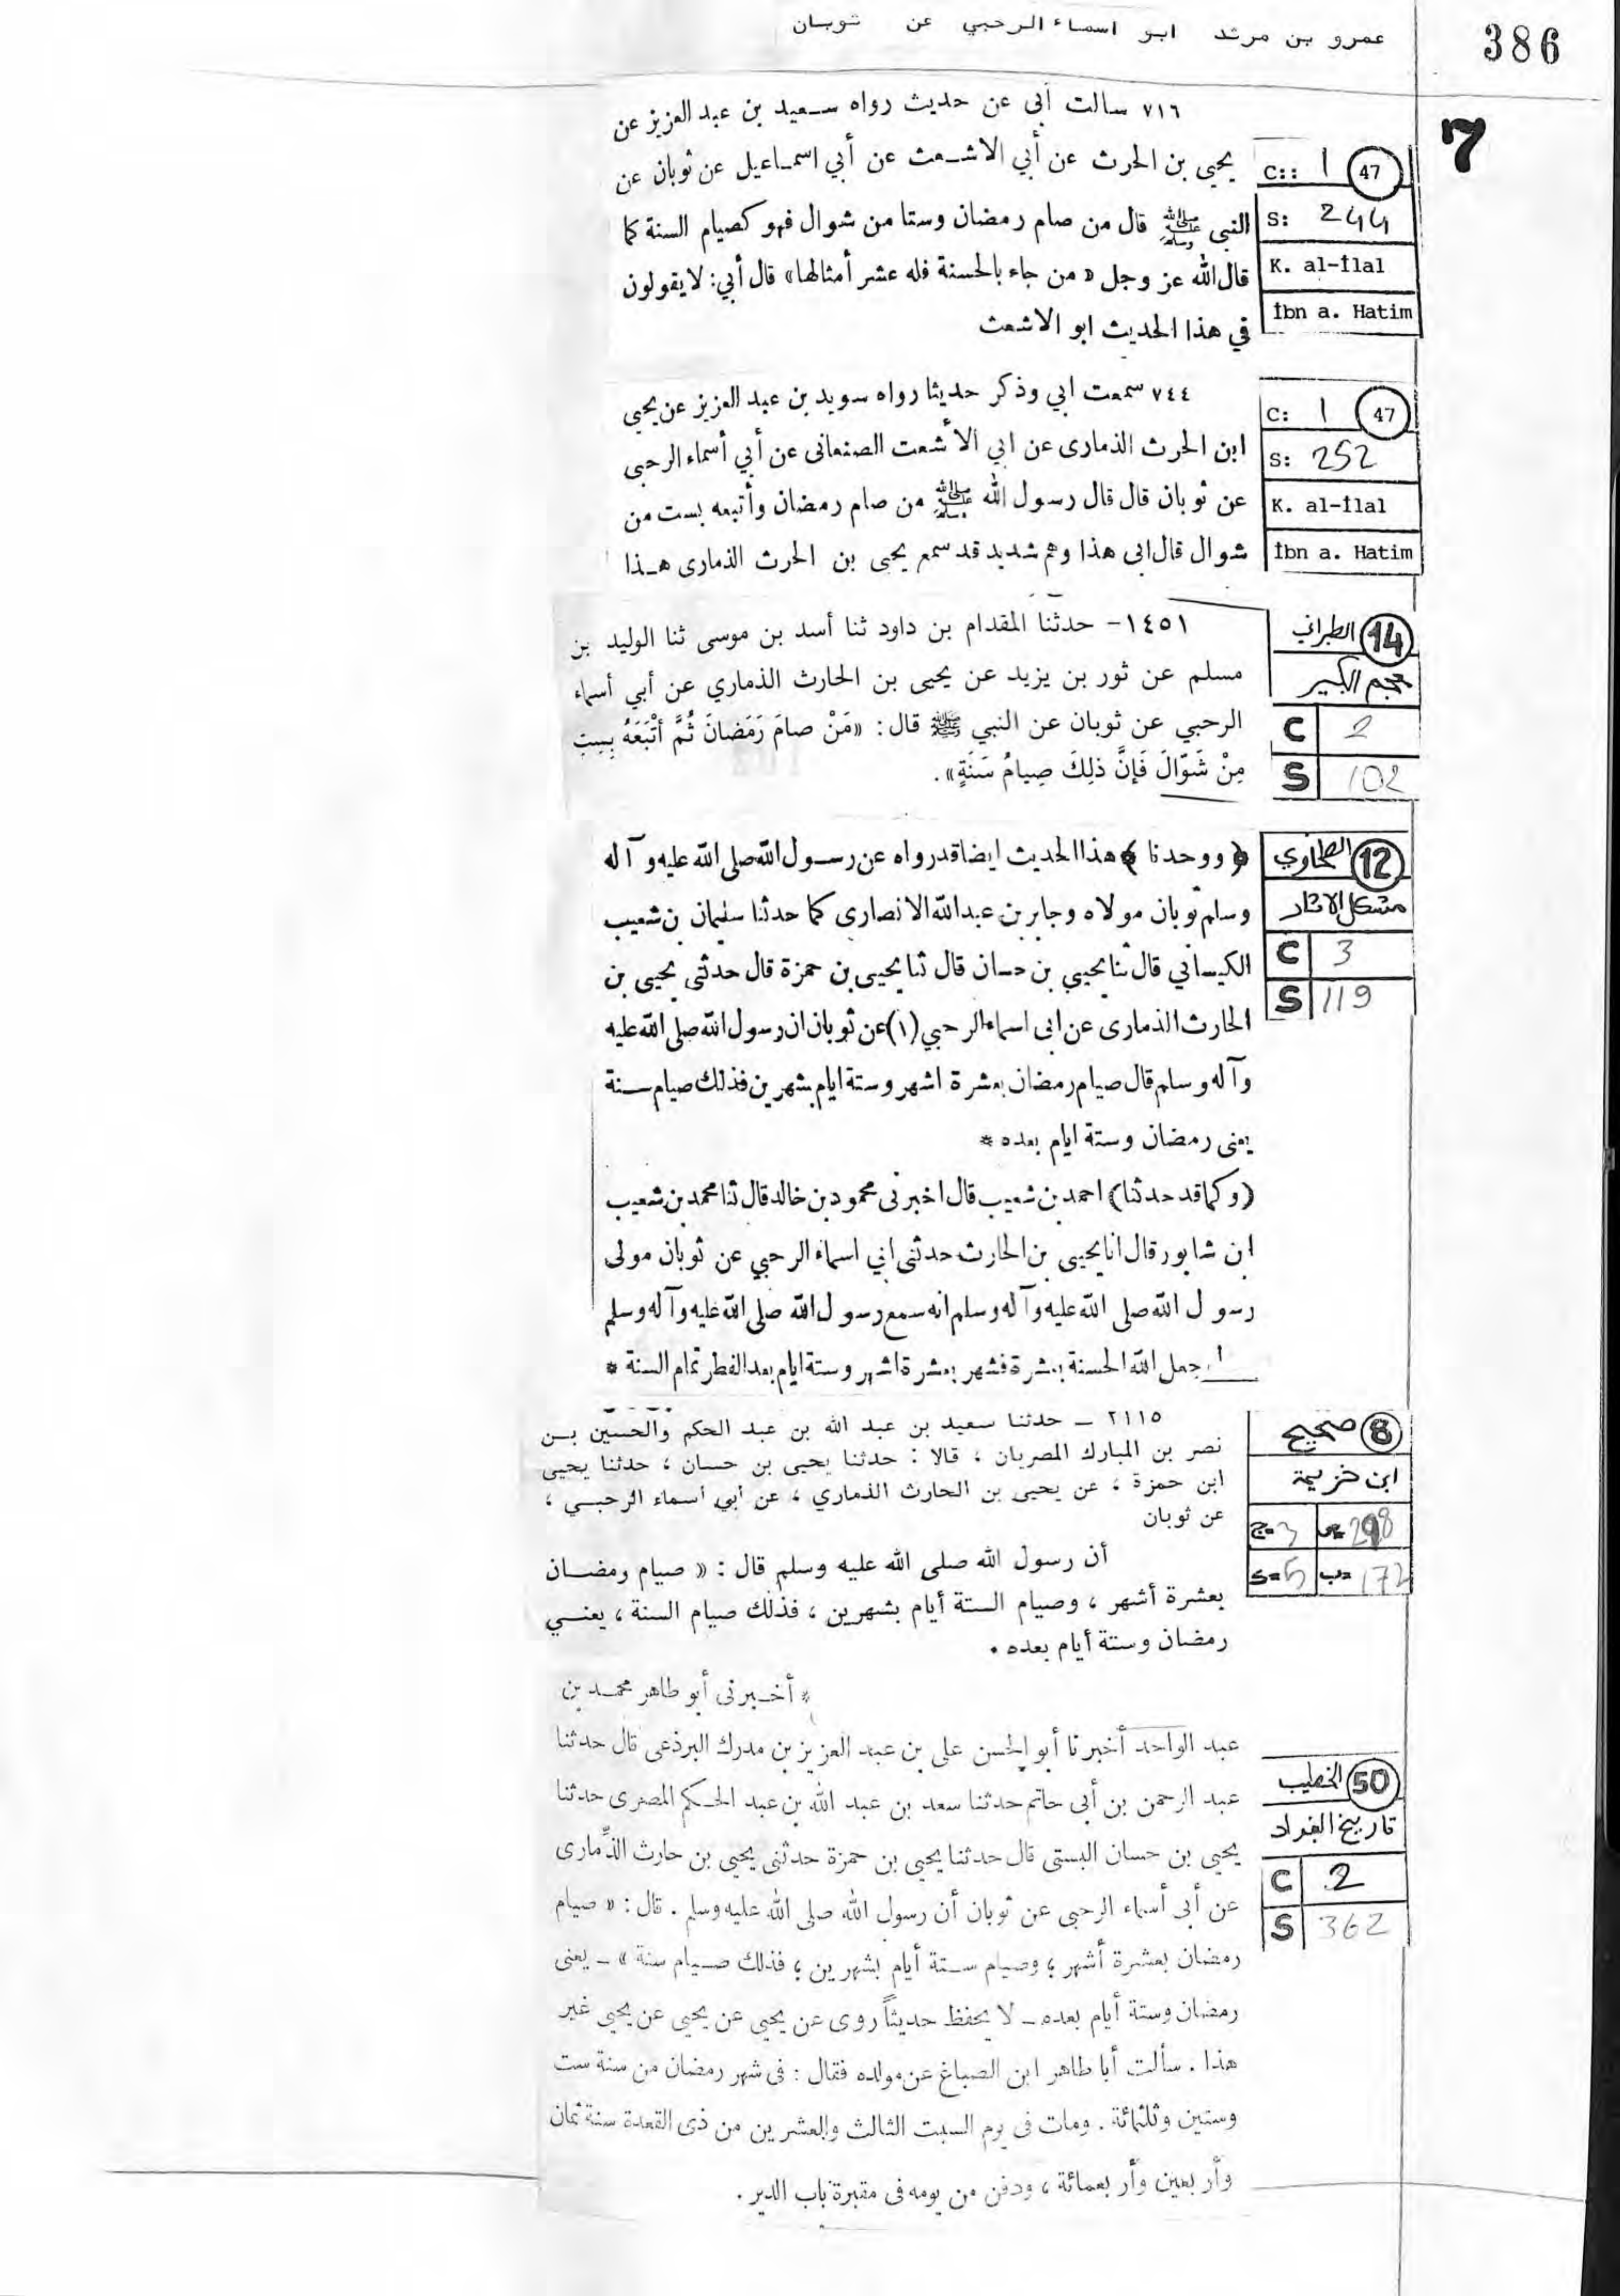 386
عمرو بن مرثد ابو اسماء الرحبي عن ثوبان
7
٧١٦ سالت أبى عن حديث رواه سعيد بن عبد العزيز عن
يحيى بن الحرث عن أبي الاشعث عن أبي اسماعيل عن ثوبان عن
النبى ﷺ قال من صام رمضان وستا من شوال فهو كصيام السنة كما
قال الله عز وجل « من جاء بالحسنة فله عشر أمثالها» قال أبي: لا يقولون
في هذا الحديث ابو الاشعث
C:: 1 47
S: 244
K. al-İlal
İbn a. Hatim
٧٤٤ سمعت ابي وذكر حديثا رواه سويد بن عبد العزيز عن يحيى
ابن الحرث الذمارى عن ابي الأشعث الصنعانى عن أبي أسماء الرحبى
عن ثوبان قال قال رسول الله ﷺ من صام رمضان وأتبعه بست من
شوال قال ابى هذا وهم شديد قد سمع يحيى بن الحرث الذمارى هذا
C: 1 47
S: 252
K. al-İlal
İbn a. Hatim
١٤٥١- حدثنا المقدام بن داود ثنا أسد بن موسى ثنا الوليد بن
مسلم عن ثور بن يزيد عن يحيى بن الحارث الذماري عن أبي أسماء
الرحبي عن ثوبان عن النبي ﷺ قال: «مَنْ صامَ رَمَضانَ ثُمَّ أتْبَعَهُ بِسِتٍ
مِنْ شَوّالَ فَإنَّ ذلِكَ صِيامُ سَنَةٍ».
14 الطبراني
معجم الكبير
C 2
S 102
﴿ووحدنا﴾ هذا الحديث ايضا قد رواه عن رسول الله صلى الله عليه وآله
وسلم ثوبان مولاه وجابر بن عبد الله الانصارى كما حدثنا سليمان بن شعيب
الكيساني قال ثنا يحيي بن حسان قال ثنا يحيى بن حمزة قال حدثنى يحيى بن
الحارث الذمارى عن ابى اسماء الرحبي (١) عن ثوبان ان رسول الله صلى الله عليه
وآله وسلم قال صيام رمضان بعشرة اشهر وستة ايام بشهرين فذلك صيام سنة
يعنى رمضان وستة ايام بعده *
(وكما قد حدثنا) احمد بن شعيب قال اخبرنى محمود بن خالد قال ثنا محمد بن شعيب
ابن شابور قال انا يحيى بن الحارث حدثنى ابي اسماء الرحبي عن ثوبان مولى
رسول الله صلى الله عليه وآله وسلم انه سمع رسول الله صلى الله عليه وآله وسلم
جعل الله الحسنة بعشرة فشهر بعشرة اشهر وستة ايام بعد الفطر تمام السنة *
12 الطحاوي
مشكل الاثار
C 3
S 119
٢١١٥ ـ حدثنا سعيد بن عبد الله بن عبد الحكم والحسين بن
نصر بن المبارك المصريان ، قالا : حدثنا يحيى بن حسان ، حدثنا يحيى
ابن حمزة ، عن يحيى بن الحارث الذماري ، عن أبي أسماء الرحبي ،
عن ثوبان
أن رسول الله صلى الله عليه وسلم قال : « صيام رمضان
بعشرة أشهر ، وصيام الستة أيام بشهرين ، فذلك صيام السنة ، يعني
رمضان وستة أيام بعده .
8 صحيح
ابن خزيمة
ج= 3 ص= 298
S= 5 ب= 172
* أخبرنى أبو طاهر محمد بن
عبد الواحد أخبرنا أبو الحسن على بن عبد العزيز بن مدرك البرذعى قال حدثنا
عبد الرحمن بن أبى حاتم حدثنا سعد بن عبد الله بن عبد الحكم المصرى حدثنا
يحيى بن حسان البستى قال حدثنا يحيى بن حمزة حدثنى يحيى بن حارث الذِّمارى
عن أبى أسماء الرحبى عن ثوبان أن رسول الله صلى الله عليه وسلم . قال : « صيام
رمضان بعشرة أشهر ، وصيام ستة أيام بشهرين ، فذلك صيام سنة » ـ يعنى
رمضان وستة أيام بعده ـ لا يحفظ حديثاً روى عن يحيى عن يحيى عن يحيى غير
هذا . سألت أبا طاهر ابن الصباغ عن مولده فقال : فى شهر رمضان من سنة ست
وستين وثلثمائة . ومات فى يوم السبت الثالث والعشرين من ذى القعدة سنة ثمان
وأربعين وأربعمائة ، ودفن من يومه فى مقبرة باب الدير .
50 الخطيب
تاريخ البغداد
C 2
S 362